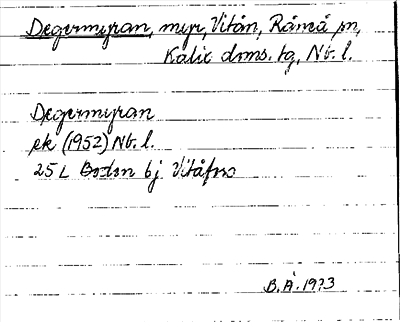 Degermyran, myr, Vitån, Råneå sn,
Kalix doms. tg, Nb. l.
Degermyran
ek (1952) Nb. l.
25 L Boden bj Vitåfors
B. Å. 1973